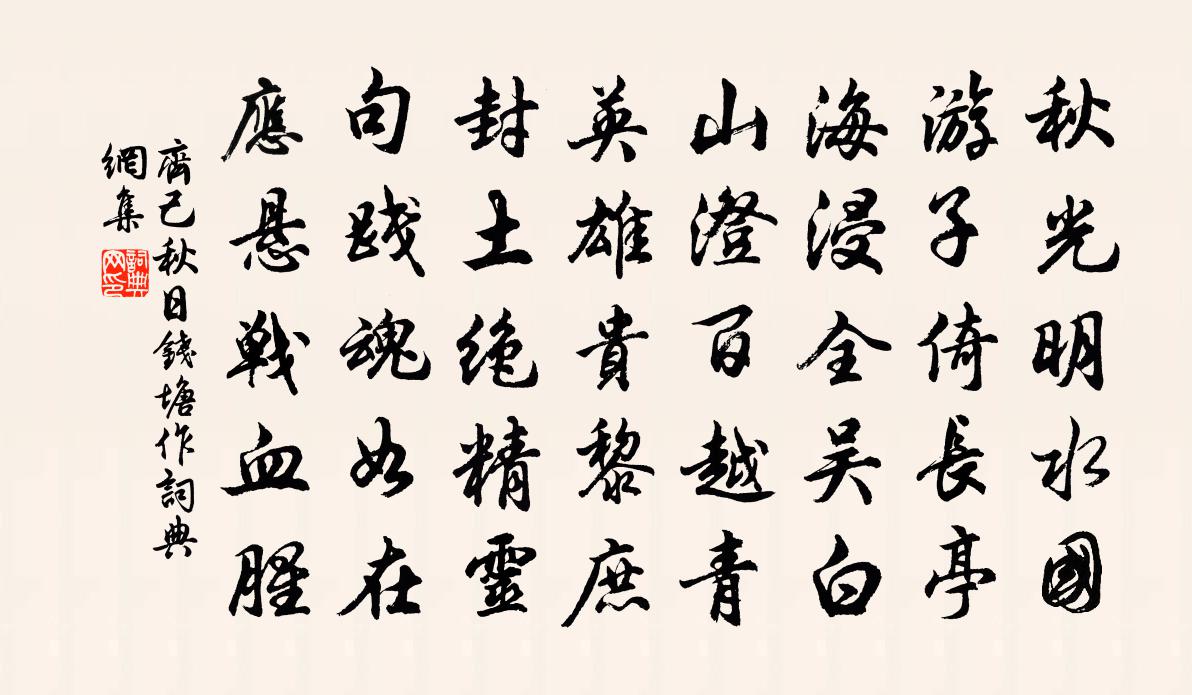 秋光明水國
游子倚長亭
海浸全吴白
山澄百越青
英雄貴黎庶
封土绝精靈
句践魂如在
應悬戦血腥
齊己秋日錢塘作詞典
網集
詞典
网印